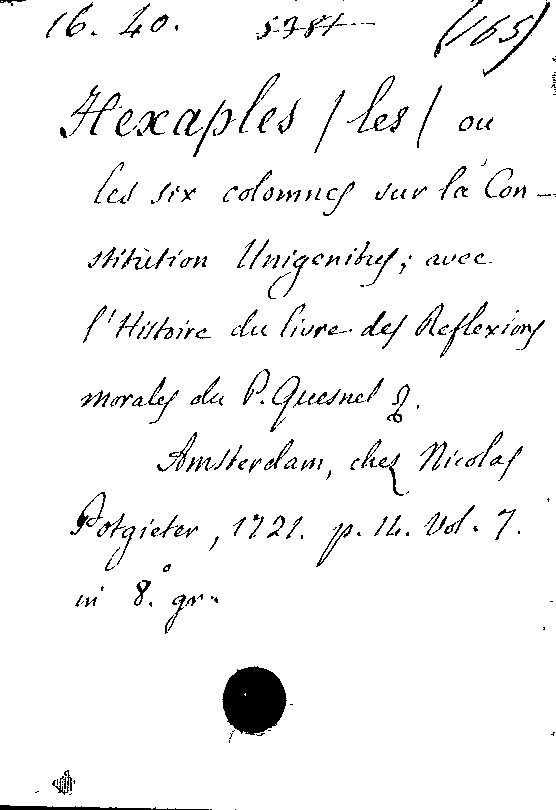 16. 40. 5381 (165)
Hexaples / les / ou
les six colomnes sur la Con-
stitution Unigenitus; avec
l'Histoire du livre des Reflexions
morales du P. Quesnel &.
Amsterdam, chez Nicolas
Potgieter, 1721. p. 14. Vol. 7.
in 8.° gr.